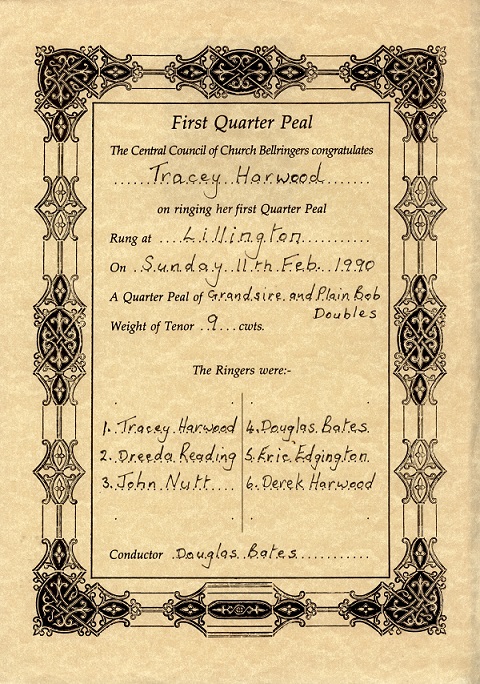 First Quarter Peal
The Central Council of Church Bellringers congratulates
Tracey Harwood
on ringing her first Quarter Peal
Rung at Lillington
On Sunday 11th Feb. 1990
A Quarter Peal of Grandsire and Plain Bob
Doubles
Weight of Tenor 9 cwts.
The Ringers were:-
1. Tracey Harwood 4. Douglas Bates
2. Dreeda Reading 5. Eric Edgington
3. John Nutt 6. Derek Harwood
Conductor Douglas Bates